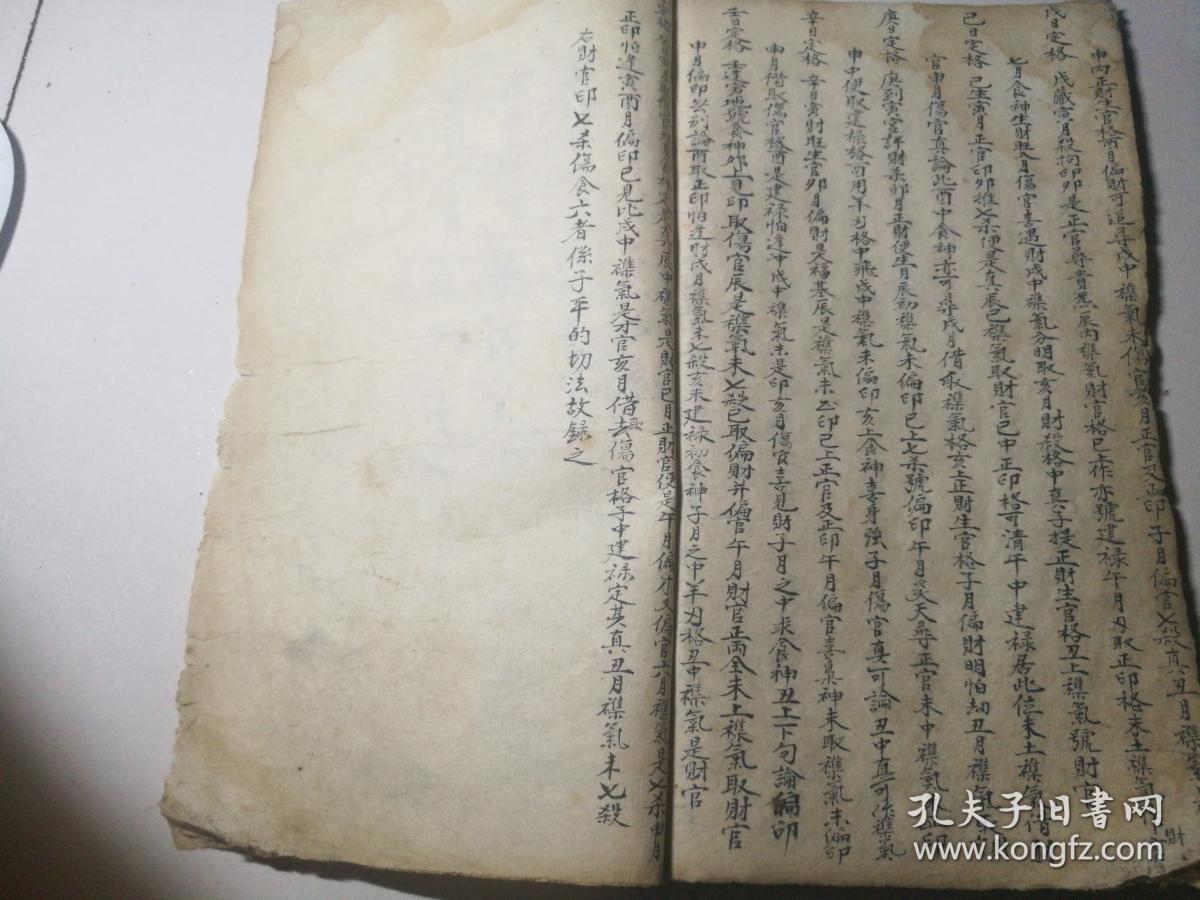 申丙正財生官格酉月偏財可追尋戌中襍氣未傷官亥月正官及正印子月偏官七殺真丑月襍
戊日定格 戊藏寅月殺拘印卯是正官尋貴煞辰丙襍氣財官格巳上作亦號建禄午月刃取正印格未土襍氣
七月食神生財旺八月傷官喜遇財戌中襍氣分明取亥月財殺格中真子提正財生官格丑上襍氣號財官
己日定格 己生寅月正官印卯推七杀便是真辰巳襍氣取財官巳中正印格可清午中建禄居此位未土襍氣借
官申月傷官真論此酉中食神亦可尋戌月借取襍氣格亥上正財生官格子月偏財明怕劫丑月襍氣印
庚日定格 庚到寅宮評財杀卯月正財便生月辰初襍氣未偏印巳上七杀號偏印午月炎天尋正官未中襍氣正印
申中便取建禄格酉用羊刃格中飛戌中襍氣未偏印亥上食神喜身強子月傷官真可論丑中真可作襍氣
辛日定格 辛月寅財旺生官卯月偏財是福基辰是襍氣未正印巳上正官及正印午月偏官喜梟神未取襍氣未偏印
申月借取傷官格酉是建禄怕逢冲戌中襍氣未是印亥月傷官喜見財子月之中求食神丑上下旬論偏印
壬日定格 壬逢寅地號食神卯上見印取傷官辰是襍氣未七殺巳取偏財并偏官午月財官正両全未上襍氣取財官
申月偏印另别論酉取正印怕逢財戌月襍氣未七殺亥未建禄初食神子月之中羊刃格丑中襍氣是財官
辰中襍氣是財官巳月正財官便是午月偏才又偏官六月襍氣是七杀申月
正印怕逢寅酉月偏印已見比戌中襍氣是才官亥月借去取傷官格子中建禄定其真丑月襍氣未七殺
右財官印七杀傷食六者係子平的切法故録之
財
孔夫子旧書网
www.kongfz.com